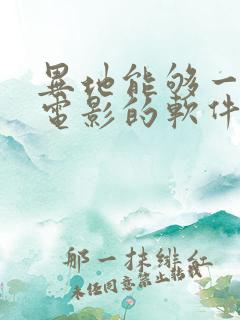 異地能够一
電影的軟件
那一抹緋紅
未经同意禁止转载